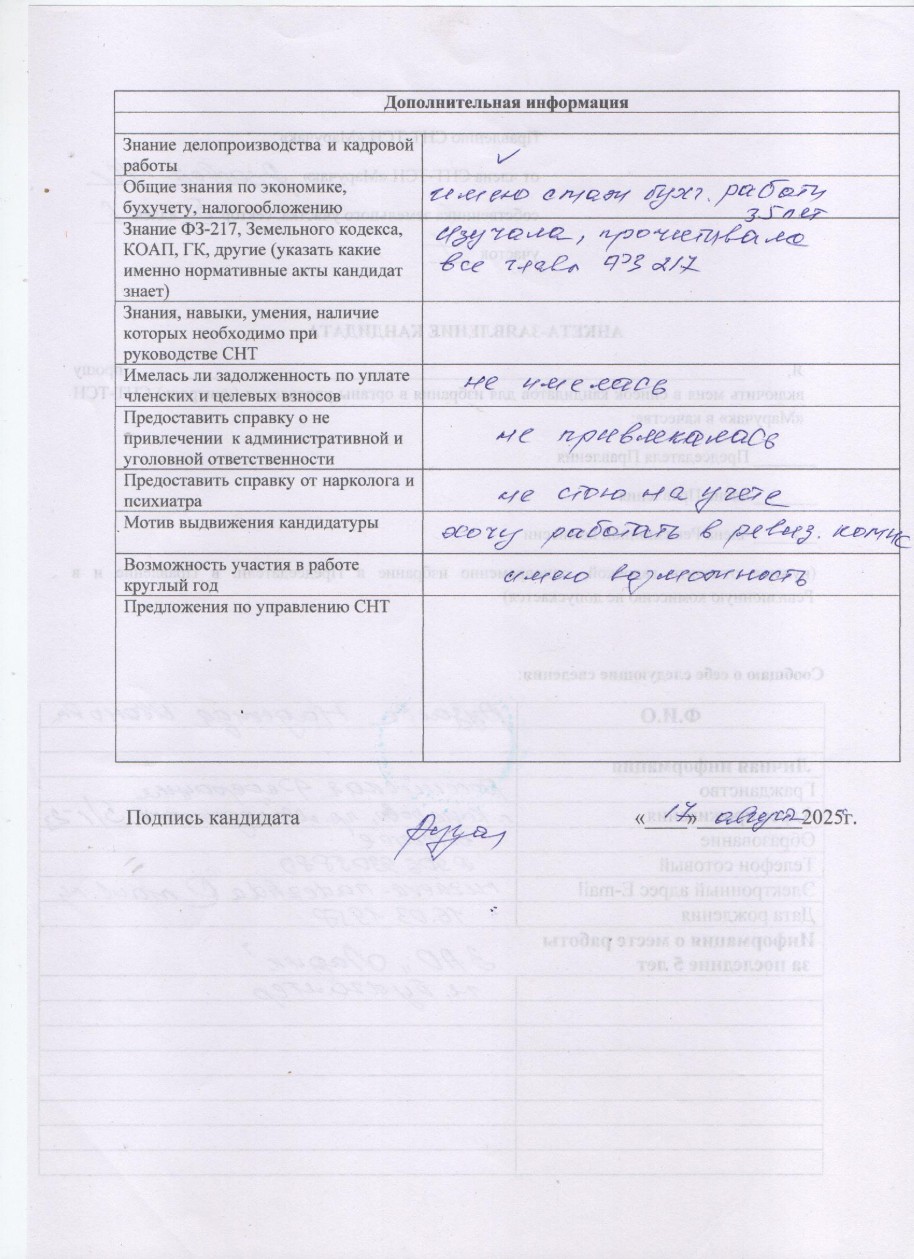 Дополнительная информация
Знание делопроизводства и кадровой
работы
✓
Общие знания по экономике,
бухучету, налогообложению
имею стаж бухг. работы
35 лет
Знание ФЗ-217, Земельного кодекса,
КОАП, ГК, другие (указать какие
именно нормативные акты кандидат
знает)
изучала, прочитывала
все главы ФЗ 217
Знания, навыки, умения, наличие
которых необходимо при
руководстве СНТ
Имелась ли задолженность по уплате
членских и целевых взносов
не имелась
Предоставить справку о не
привлечении к административной и
уголовной ответственности
не привлекалась
Предоставить справку от нарколога и
психиатра
не стою на учете
Мотив выдвижения кандидатуры
хочу работать в ревиз. комис
Возможность участия в работе
круглый год
имею возможность
Предложения по управлению СНТ
Подпись кандидата
«17» августа 2025г.